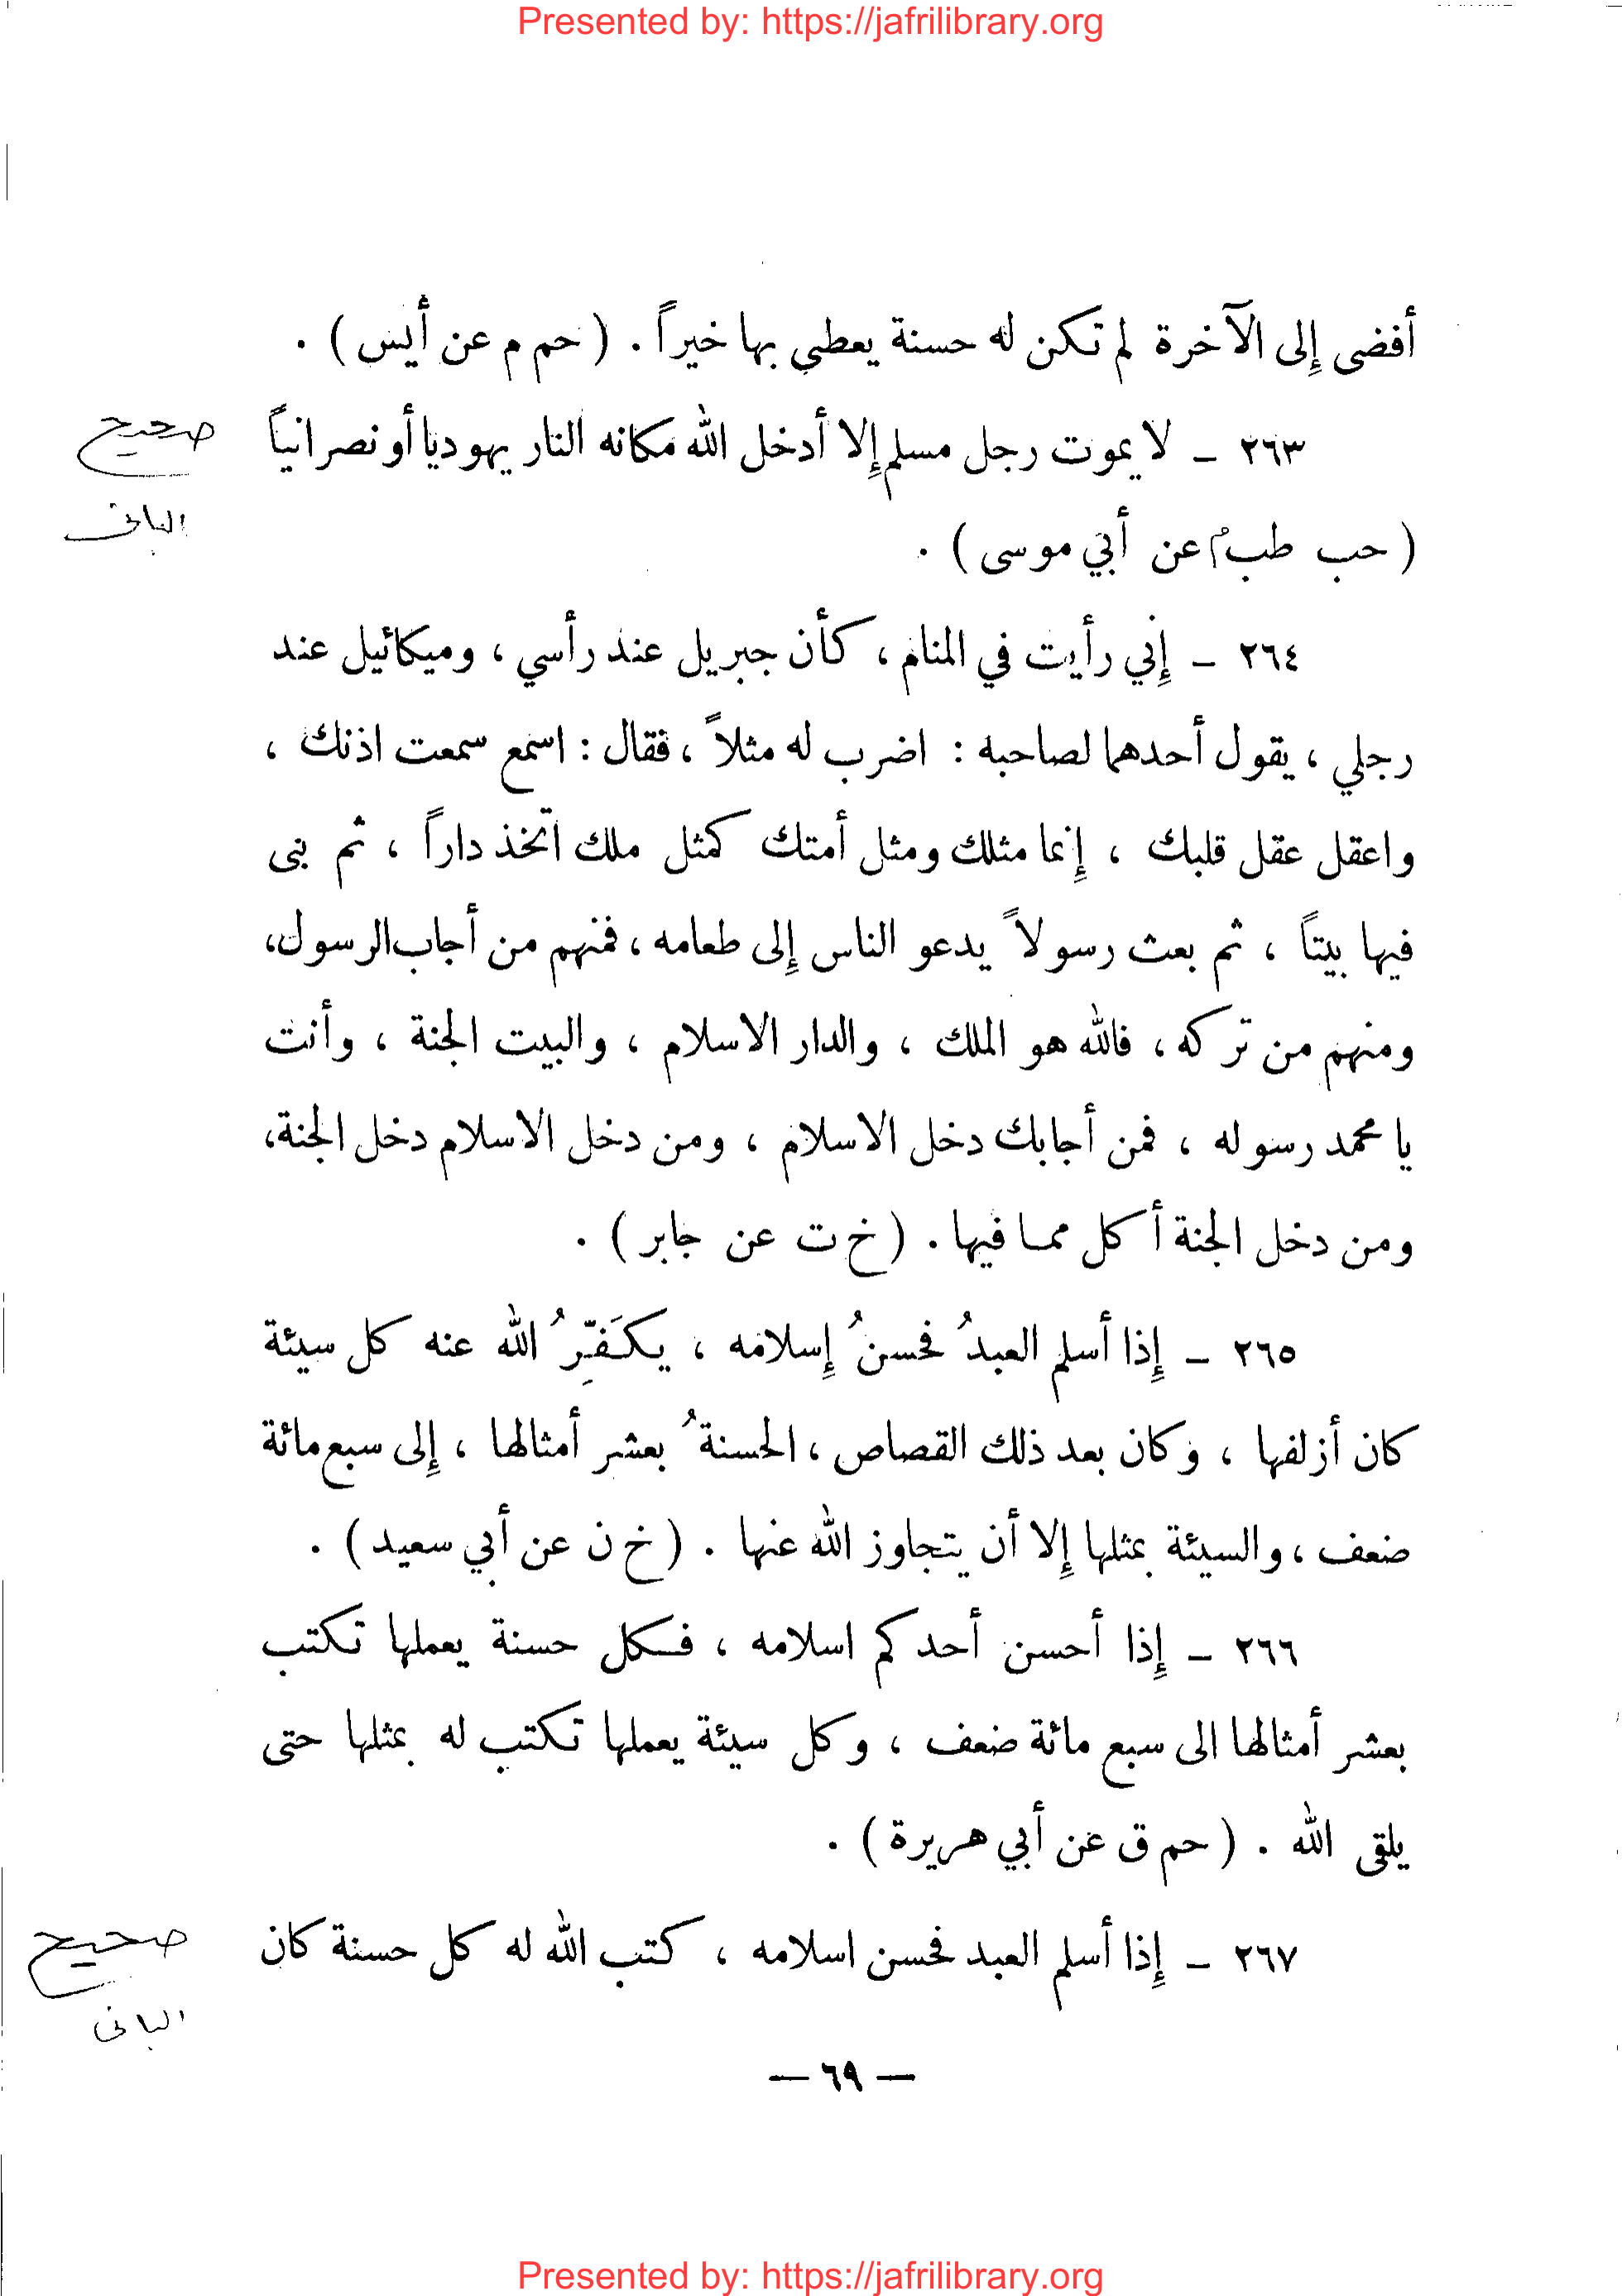 Presented by: https://jafrilibrary.org
أفضى إِلى الآخرة لم تكن له حسنة يعطي بها خيراً . ( حم م عن أيس ) .
٢٦٣ ـ لا يموت رجل مسلم إِلا أدخل الله مكانه النار يهوديا أو نصرانياً
صحيح
البانى
( حب طب م عن أبي موسى ) .
٢٦٤ ـ إِني رأيت في المنام ، كأن جبريل عند رأسي ، وميكائيل عند
رجلي ، يقول أحدهما لصاحبه : اضرب له مثلاً ، فقال : اسمع سمعت اذنك ،
واعقل عقل قلبك ، إِنما مثلك ومثل أمتك كمثل ملك اتخذ داراً ، ثم بنى
فيها بيتاً ، ثم بعث رسولاً يدعو الناس إِلى طعامه ، فمنهم من أجاب الرسول،
ومنهم من تركه ، فالله هو الملك ، والدار الاسلام ، والبيت الجنة ، وأنت
يا محمد رسوله ، فمن أجابك دخل الاسلام ، ومن دخل الاسلام دخل الجنة،
ومن دخل الجنة أكل مما فيها . ( خ ت عن جابر ) .
٢٦٥ ـ إِذا أسلم العبدُ فحسنُ إِسلامه ، يكَفِّرُ الله عنه كل سيئة
كان أزلفها ، وكان بعد ذلك القصاص ، الحسنةُ بعشر أمثالها ، إِلى سبع مائة
ضعف ، والسيئة بمثلها إِلا أن يتجاوز الله عنها . ( خ ن عن أبي سعيد ) .
٢٦٦ ـ إِذا أحسن أحدكم اسلامه ، فكل حسنة يعملها تكتب
بعشر أمثالها الى سبع مائة ضعف ، وكل سيئة يعملها تكتب له بمثلها حتى
يلقى الله . ( حم ق عن أبي هريرة ) .
٢٦٧ ـ إِذا أسلم العبد فحسن اسلامه ، كتب الله له كل حسنة كان
صحيح
البانى
— ٦٩ —
Presented by: https://jafrilibrary.org